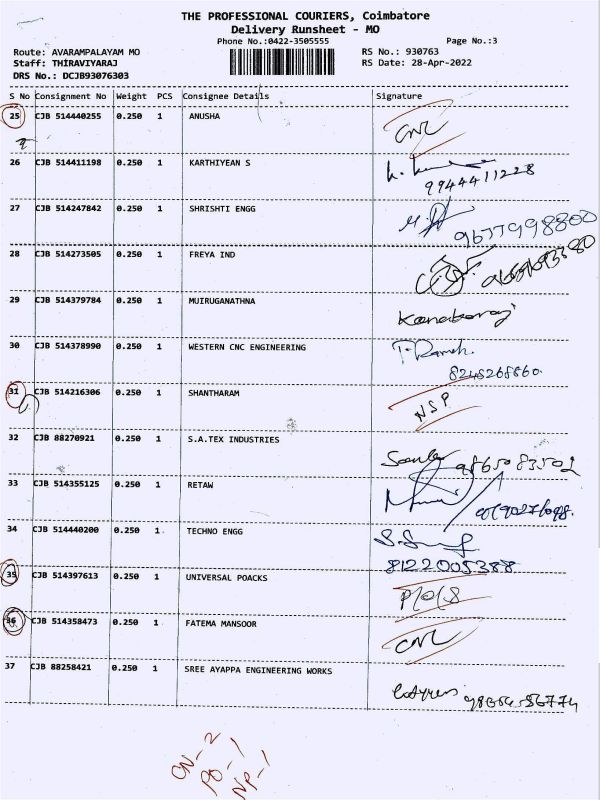 THE PROFESSIONAL COURIERS, Coimbatore
Delivery Runsheet - MO
Phone No.:0422-3505555 Page No.:3
Route: AVARAMPALAYAM MO RS No.: 930763
Staff: THIRAVIYARAJ RS Date: 28-Apr-2022
DRS No.: DCJB93076303
S No Consignment No Weight PCS Consignee Details Signature
25 CJB 514440255 0.250 1 ANUSHA CNL
26 CJB 514411198 0.250 1 KARTHIYEAN S
9944411228
27 CJB 514247842 0.250 1 SHRISHTI ENGG
9677998800
28 CJB 514273505 0.250 1 FREYA IND
29 CJB 514379784 0.250 1 MUIRUGANATHNA
Kanabaraj
30 CJB 514378990 0.250 1 WESTERN CNC ENGINEERING T. Ramesh.
8248268860.
31 CJB 514216306 0.250 1 SHANTHARAM NSP
32 CJB 88270921 0.250 1 S.A.TEX INDUSTRIES
9865083502
33 CJB 514355125 0.250 1 RETAW
34 CJB 514440200 0.250 1 TECHNO ENGG
8122005388
35 CJB 514397613 0.250 1 UNIVERSAL POACKS
36 CJB 514358473 0.250 1 FATEMA MANSOOR CNL
37 CJB 88258421 0.250 1 SREE AYAPPA ENGINEERING WORKS
CN_2
PO_1
NP_1